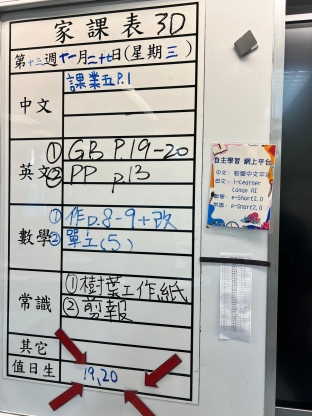 家課表 3D
第十三週十一月二十七日(星期三)
中文
課業五P.1
英文
① GB P.19-20
② PP p.13
數學
① 作p.8-9+改
② 單工(5)
常識
① 樹葉工作紙
② 剪報
其它
值日生
19,20
自主學習 網上平台
中文:
英文: i-Learner
數學: e-Smart2.0
常識: e-Smart2.0